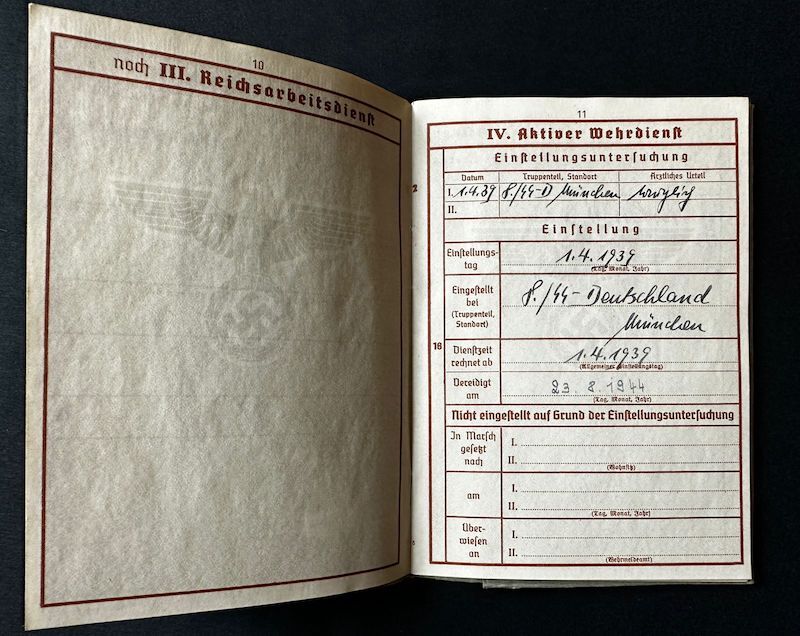 10
noch III. Reichsarbeitsdienst
11
IV. Aktiver Wehrdienst
Einstellungsuntersuchung
Datum Truppenteil, Standort Ärztliches Urteil
I. 1.4.39 8./SS-D München
II.
Einstellung
Einstellungs-
tag
1.4.1939
(Tag, Monat, Jahr)
Eingestellt
bei
(Truppenteil,
Standort)
8./SS-Deutschland
München
18
Dienstzeit
rechnet ab
1.4.1939
(Allgemeiner Einstellungstag)
Vereidigt
am
23.8.1944
(Tag, Monat, Jahr)
Nicht eingestellt auf Grund der Einstellungsuntersuchung
In Marsch
gesetzt
nach
I.
II.
(Wohnsitz)
am
I.
II.
(Tag, Monat, Jahr)
Über-
wiesen
an
I.
II.
(Wehrmeldeamt)